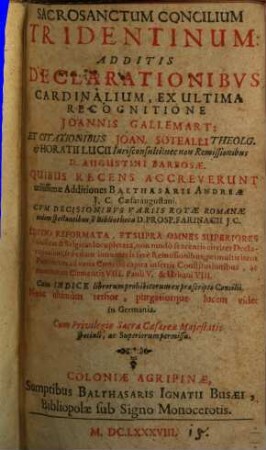 SACROSANCTUM CONCILIUM
TRIDENTINUM:
ADDITIS
DECLARATIONIBVS
CARDINALIUM, EX ULTIMA
RECOGNITIONE
JOANNIS GALLEMART;
ET CITATIONIBUS JOAN. SOTEALLI THEOLG.
& HORATII LUCII Jurisconsulti: nec non Remissionibus
D. AUGUSTINI BARBOSÆ.
QUIBUS RECENS ACCREVERUNT
utilissimæ Additiones BALTHASARIS ANDREÆ
J. C. Cæsaraugustani.
CVM DECISIONIBVS VARIIS ROTÆ ROMANÆ
D. PROSP. FARINACII J. C.
EDITIO REFORMATA, ET SUPRA OMNES SUPERIORES
CLEMENT. VIII. Pauli V. & Urbani VIII.
Cum INDICE librorum prohibitorum ex præscripto Concilii.
Nunc ultimùm tersior, purgatiorque lucem videt
in Germania.
Cum Privilegio Sacra Cæsarea Majestatis
speciali, ac Superiorum permissu.
COLONIÆ AGRIPINÆ,
Sumptibus BALTHASARIS IGNATII BUSÆI,
Bibliopolæ sub Signo Monocerotis.
M. DC. LXXXVIII.